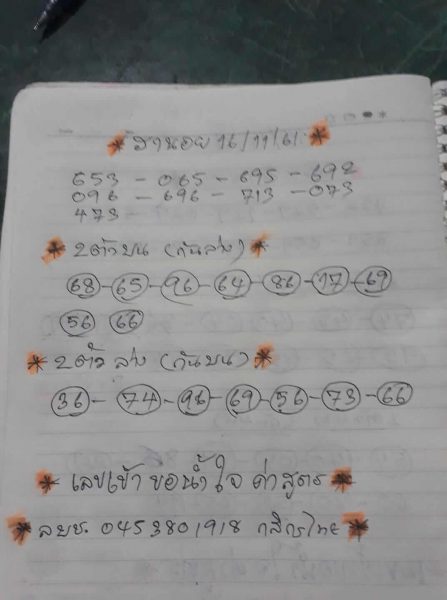 * ฮานอย 16/11/61 *
653 - 065 - 695 - 692
096 - 696 - 713 - 073
473
* 2 ตัวบน (กันล่าง) *
68 - 65 - 96 - 64 - 86 - 17 - 69
56 66
* 2 ตัว ล่าง (กันบน) *
36 - 74 - 96 - 69 - 56 - 73 - 66
* เลขเข้า ขอน้ำใจ ค่าสูตร *
* ลบช. 0453801918 กสิกรไทย *